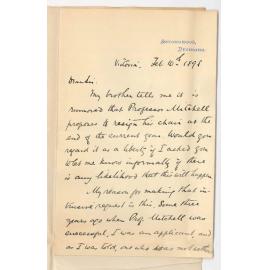 Victoria. Feb 10th 1898
Dear Sir
My brother tells me it is
rumoured that Professor Mitchell
proposes to resign his chair at the
end of the current year. Would you
regard it as a liberty if I asked you
to let me know informally if there
is any likelihood that this will happen.
My reason for making that in-
request is this. Some three
years ago when Prof. Mitchell was
successful, I was an applicant, and
as I was told, one who was not